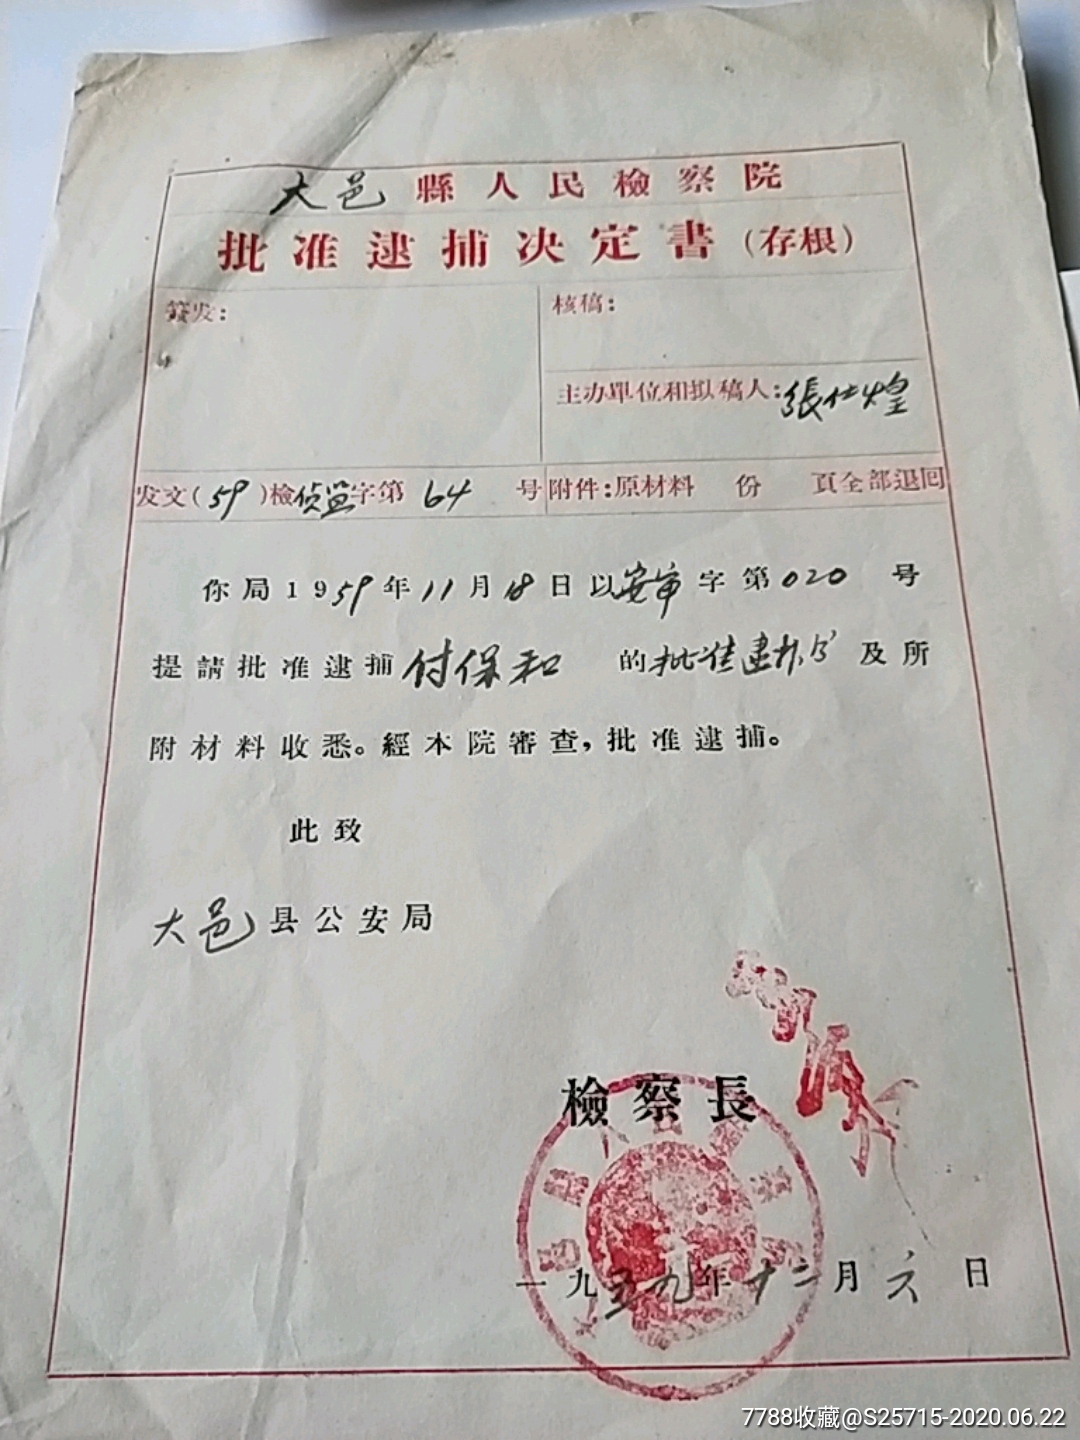 大邑縣人民檢察院
批准逮捕决定書(存根)
簽发:
核稿:
主办單位和拟稿人:張仕煌
发文(59)檢侦监字第64号
附件:原材料 份 頁全部退回
你局1959年11月18日以安审字第020号
提請批准逮捕付保和 的批准逮捕书及所
附材料收悉。經本院審查,批准逮捕。
此致
大邑县公安局
檢察長
一九五九年十二月六日
7788收藏@S25715-2020.06.22